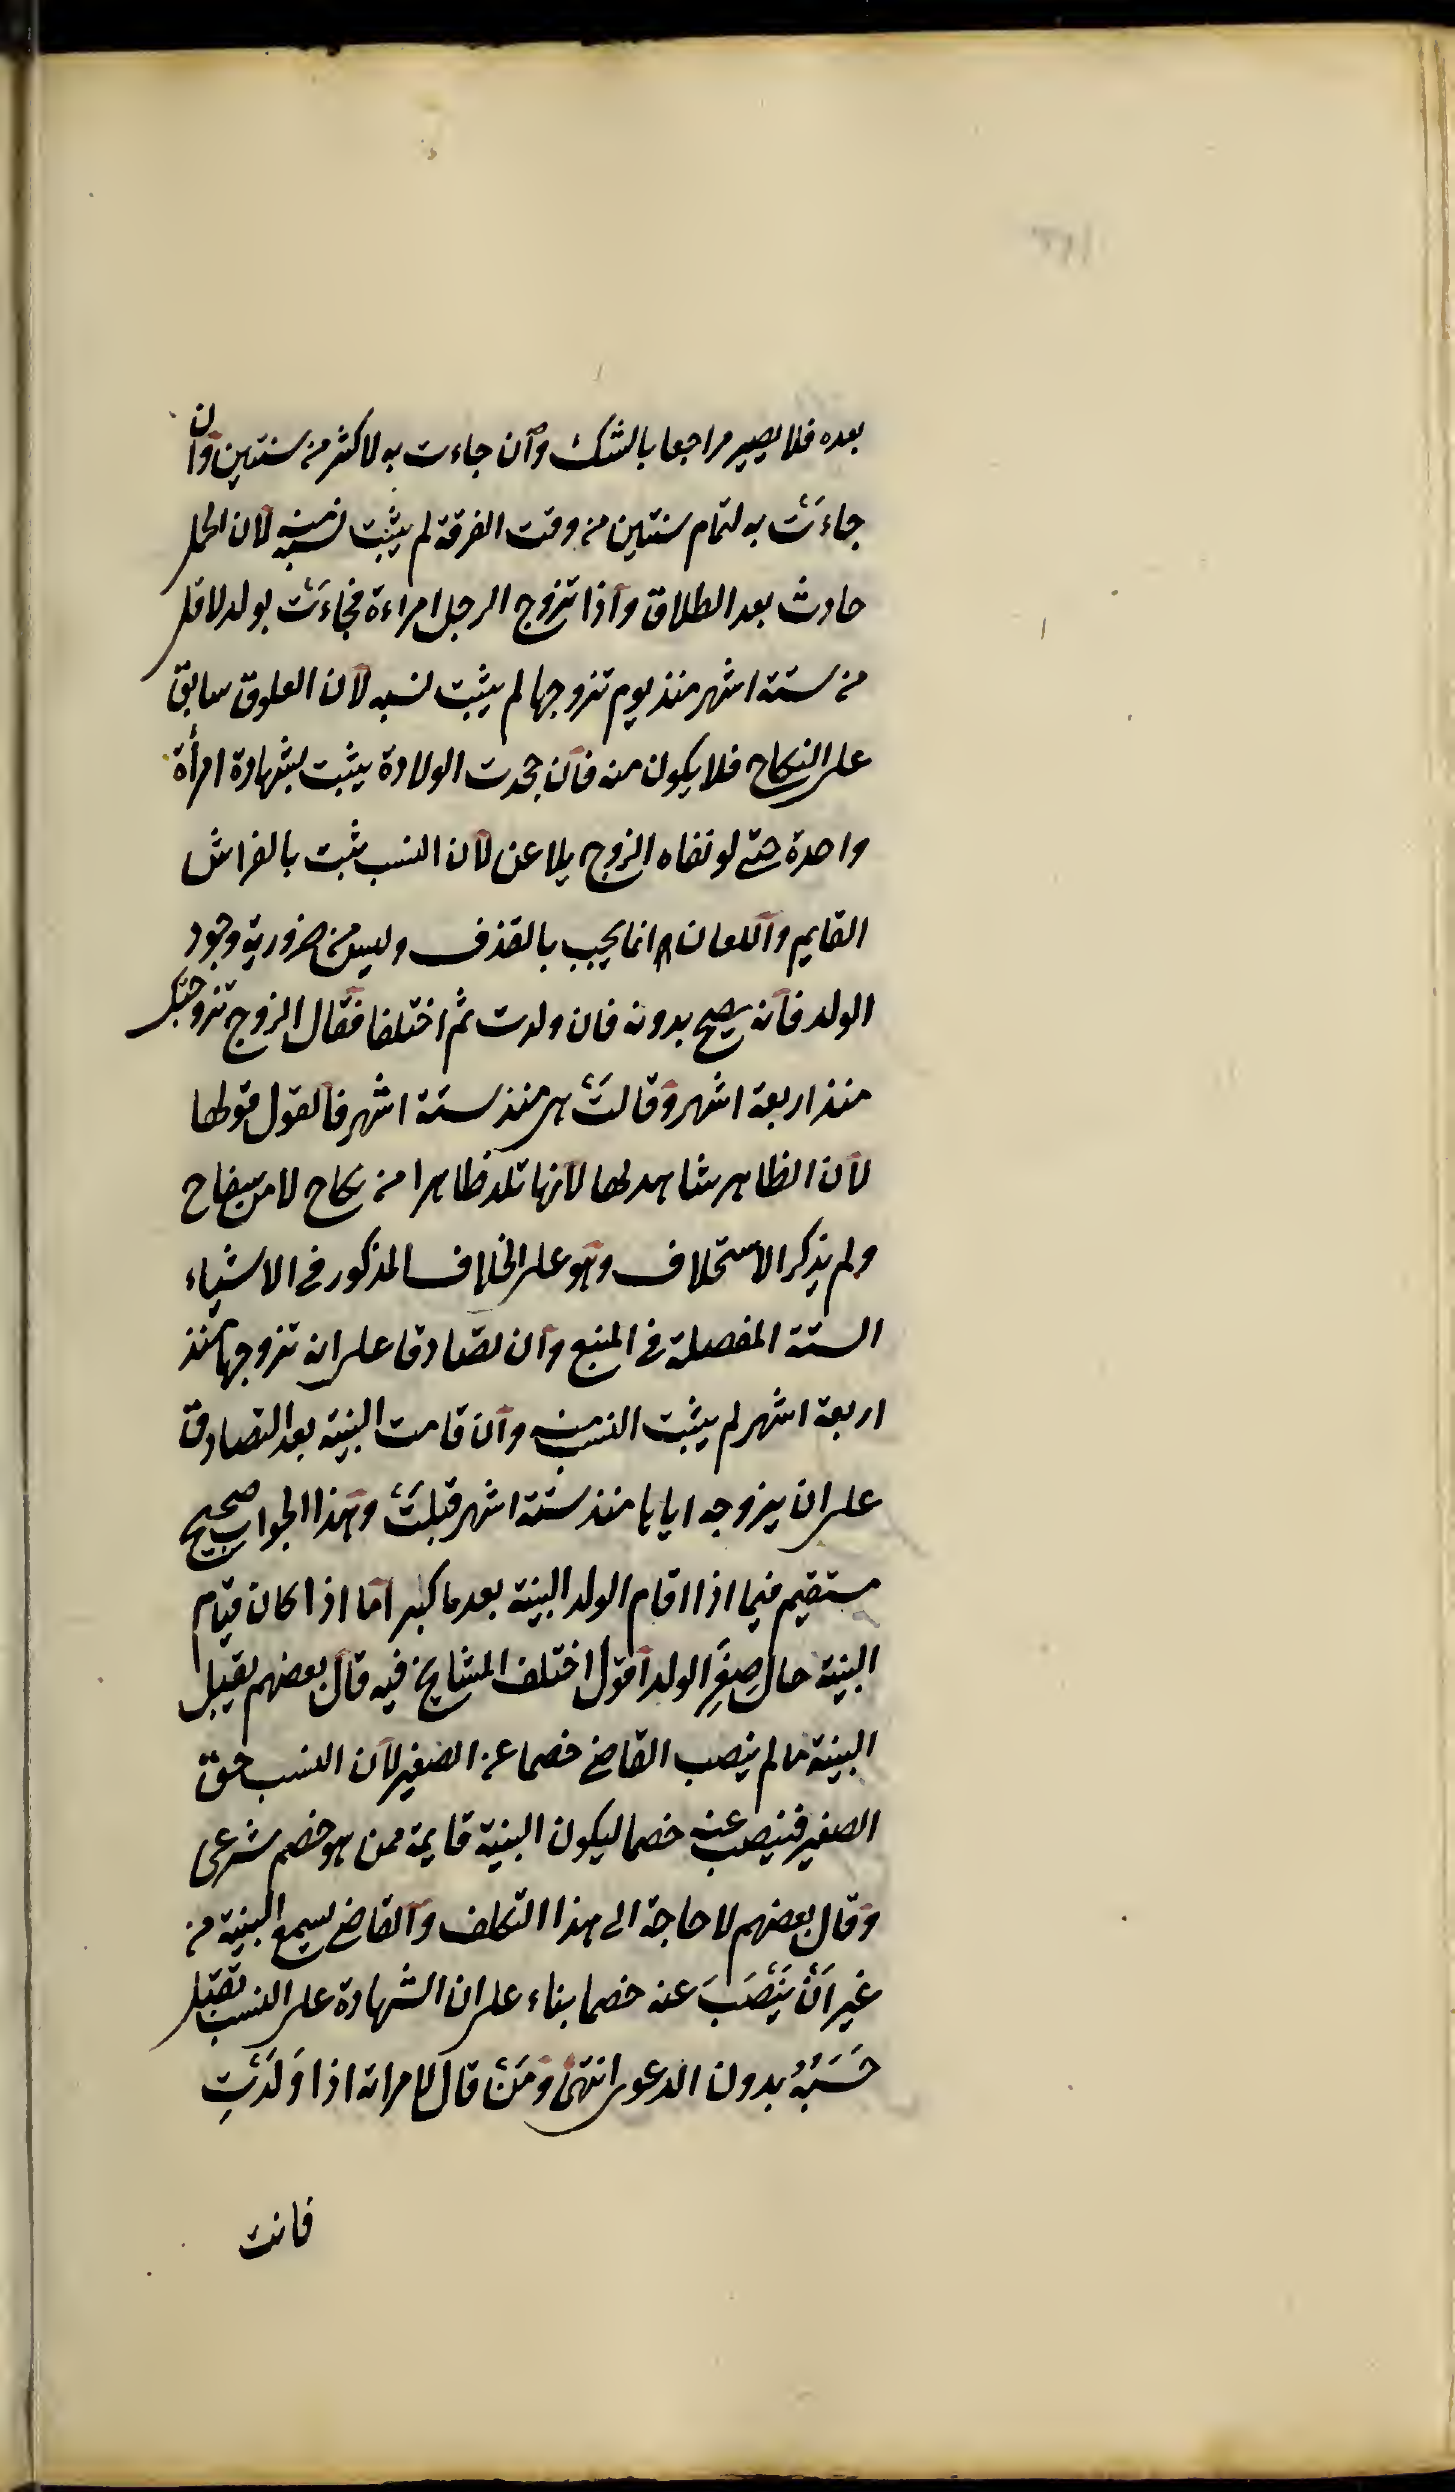 بعده فلا يصير مراجعا بالشك وان جاءت به لاكثر من سنتين وان
جاءَتْ به لتمام سنتين من وقت الفرقة لم يثبت نسبه منه لان الحمل
حادث بعد الطلاق واذا تزوج الرجل امراءة فجاءَتْ بولد لاقل
من ستة اشهر منذ يوم تزوجها لم يثبت نسبه لان العلوق سابق
على النكاح فلا يكون منه فان جحدت الولادة يثبت بشهادة امرأة
واحدة حتى لو نفاه الزوج يلاعن لان النسب يثبت بالفراش
القايم واللعان انما يجب بالقذف وليس من ضرورية وجود
الولد فانه يصح بدونه فان ولدت ثم اختلفا فقال الزوج تزوجتك
منذ اربعة اشهر وقالَتْ هي منذ ستة اشهر فالقول قولها
لان الظاهر شاهد لها لانها تلد ظاهرا من نكاح لا من سفاح
ولم يذكر الاستحلاف وهو على الخلاف المذكور في الاشياء
الستة المفصلة في المنبع وان تصادقا على انه تزوجها منذ
اربعة اشهر لم يثبت النسب منه وان قامت البينة بعد التصادق
على ان يزوجه اياها منذ ستة اشهر قبلَتْ وهذا الجواب صحيح
مستقيم فيما اذا اقام الولد البينة بعد ما كبر اما اذا كان قيام
البينة حال صِغَرِ الولد اقول اختلف المشايخ فيه قال بعضهم يقبل
البينة ما لم ينصب القاضي خصما عن الصغير لان النسب حق
الصغير فينصب عنه خصما ليكون البينة قايمة ممن هو خصم شرعى
وقال بعضهم لا حاجة الى هذا التكلف والقاضي يسمع البينة من
غير اَنْ يَنْصَبَ عنه خصما بناء على ان الشهادة على النسب تقبل
حَسَبَةً بدون الدعوى انتهى ومَنْ قال لامراته اذا وَلَدَتِ
فانت